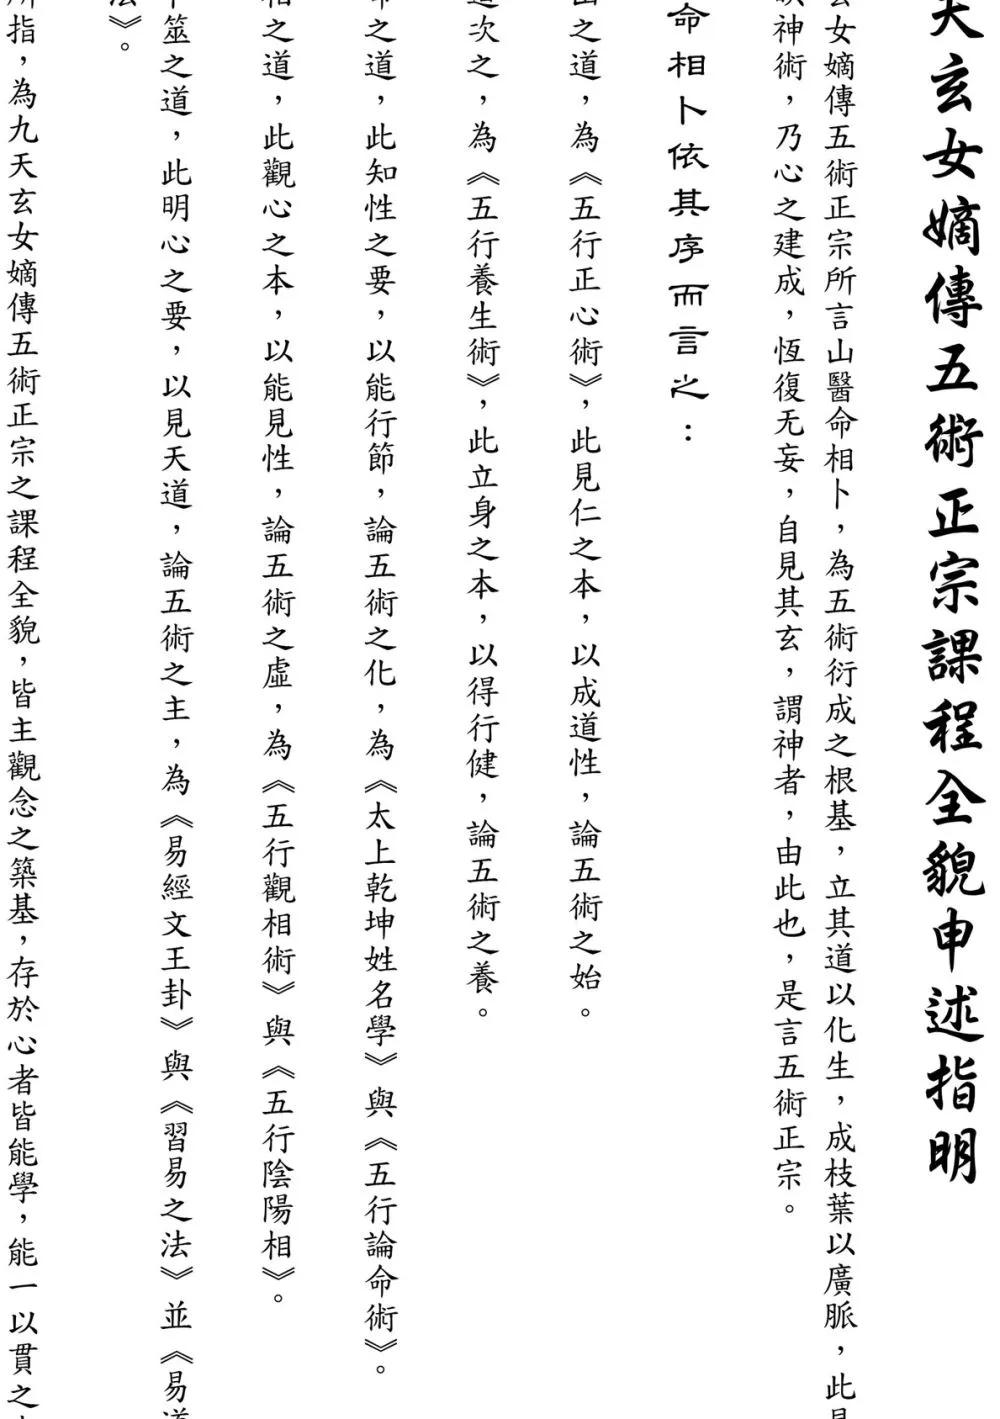 天玄女嫡傳五術正宗課程全貌申述指明
玄女嫡傳五術正宗所言山醫命相卜，為五術衍成之根基，立其道以化生，成枝葉以廣脈，此
神術，乃心之建成，恆復无妄，自見其玄，謂神者，由此也，是言五術正宗。
命相卜依其序而言之：
之道，為《五行正心術》，此見仁之本，以成道性，論五術之始。
道次之，為《五行養生術》，此立身之本，以得行健，論五術之養。
命之道，此知性之要，以能行節，論五術之化，為《太上乾坤姓名學》與《五行論命術》。
相之道，此觀心之本，以能見性，論五術之虛，為《五行觀相術》與《五行陰陽相》。
筮之道，此明心之要，以見天道，論五術之主，為《易經文王卦》與《習易之法》並《易道
法》。
所指，為九天玄女嫡傳五術正宗之課程全貌，皆主觀念之築基，存於心者皆能學，能一以貫之